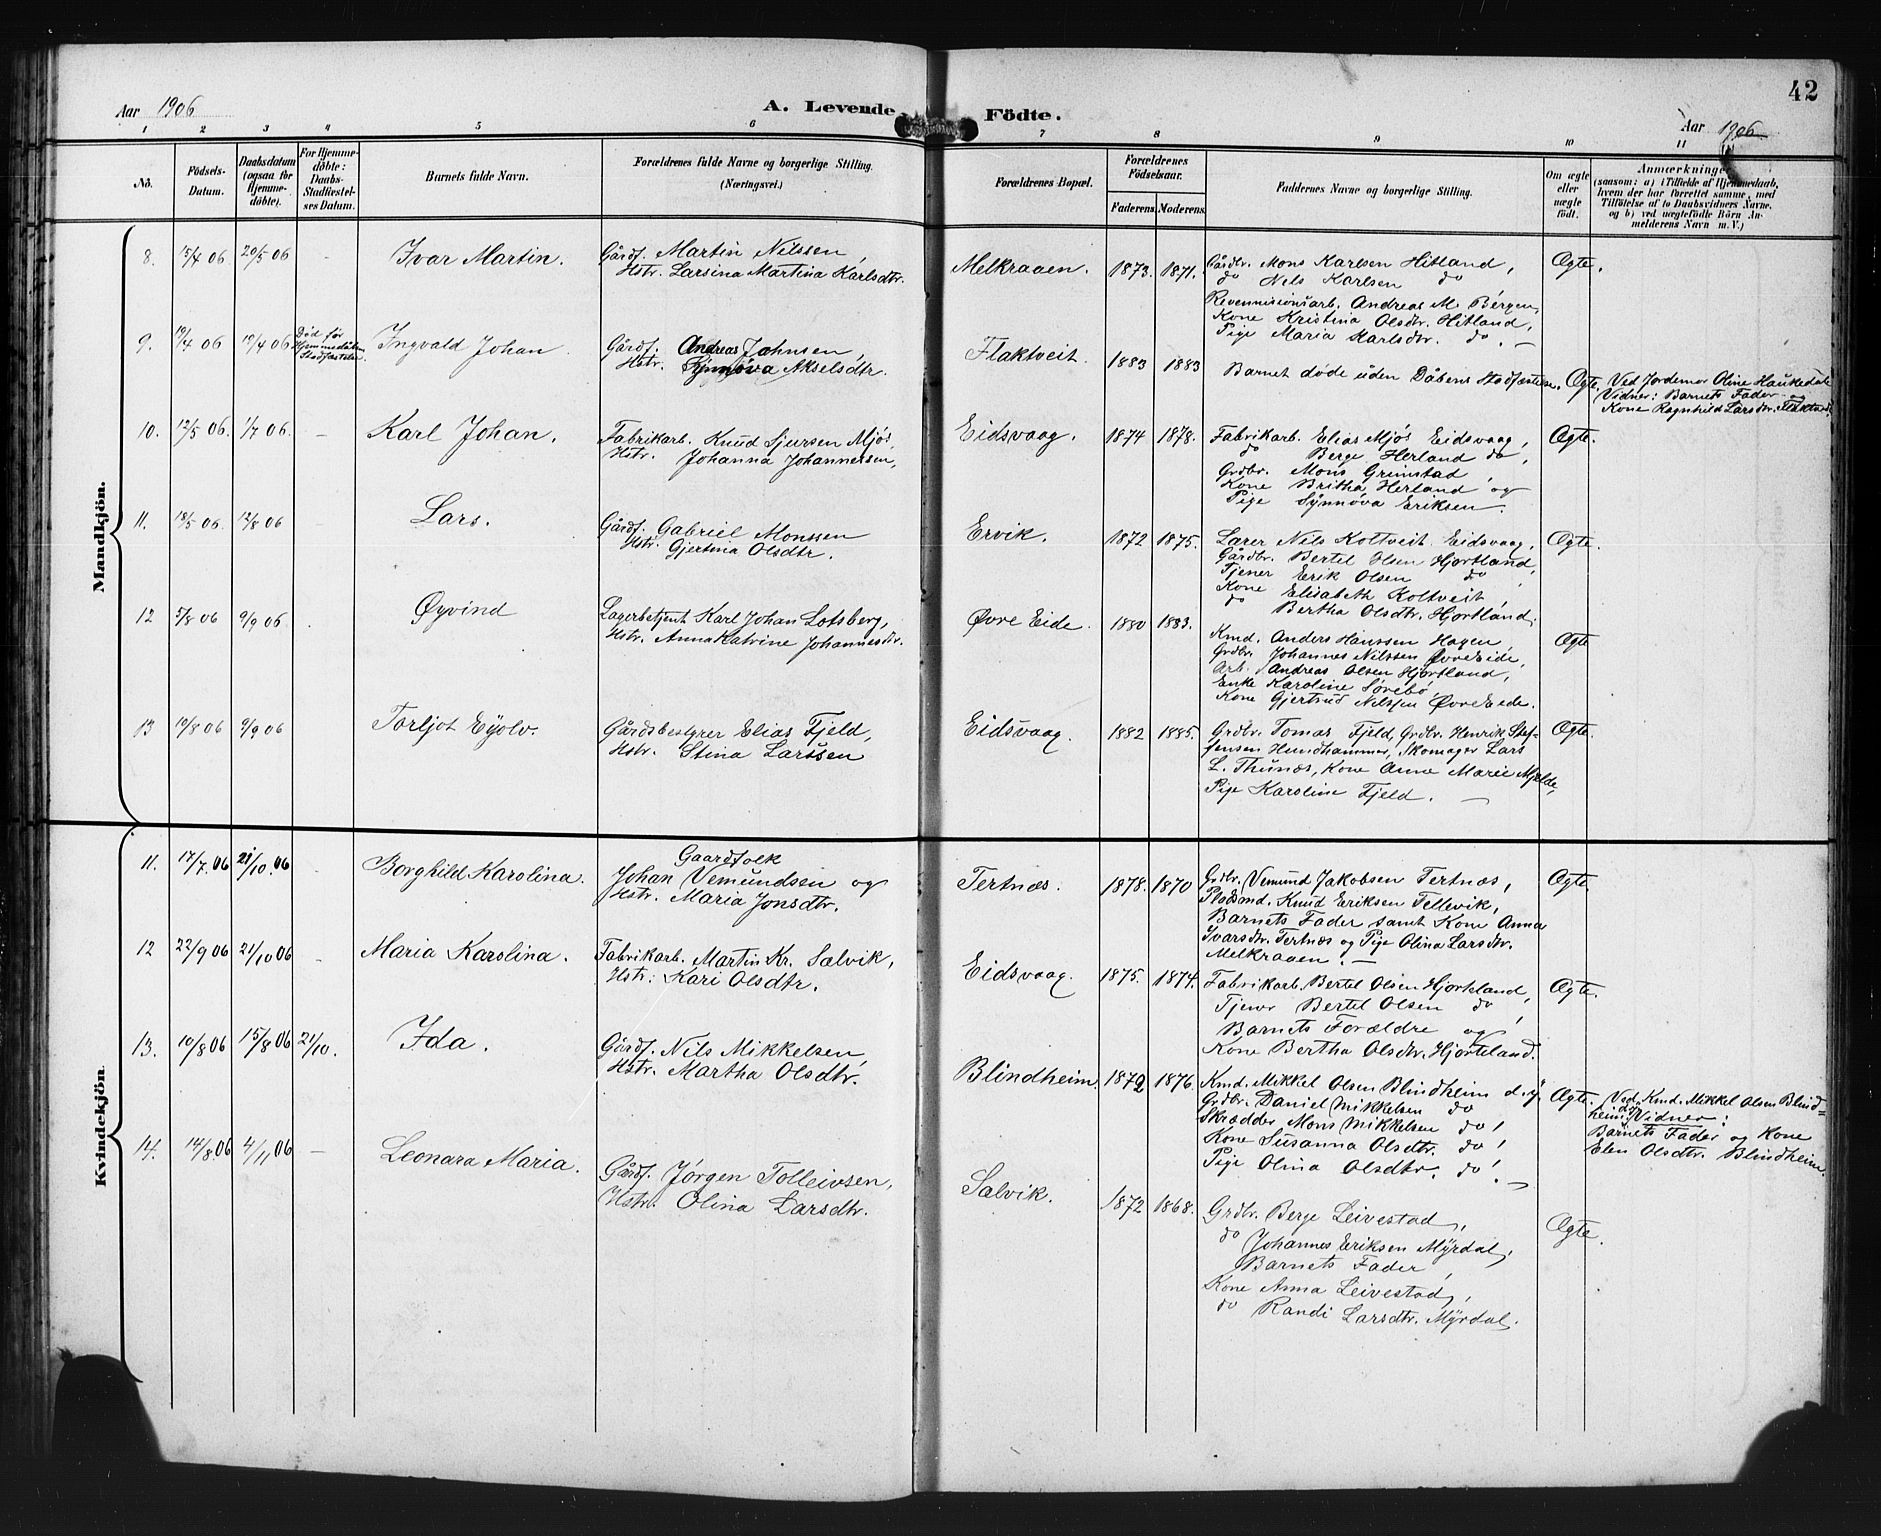 42
Aar 1906
A. Levende Födte.
Aar 1906
1 2 3 4 5 6 7 8 9 10 11
No.
Födsels-
Datum.
Daabsdatum
(ogsaa for
Hjemme-
döbte).
For Hjemme-
döbte:
Daabs-
Stadfæstel-
ses Datum.
Barnets fulde Navn.
Forældrenes fulde Navne og borgerlige Stilling.
(Næringsvei.)
Forældrenes Bopæl.
Forældrenes
Födselsaar.
Faderens. Moderens.
Faddernes Navne og borgerlige Stilling.
Om ægte
eller
uægte
födt.
Anmærkninger
(saasom: a) i Tilfælde af Hjemmedaab,
hvem der har forrettet samme, med
Tilföielse af to Daabsvidners Navne,
og b) ved uægtefödte Börn An-
melderens Navn m. V.)
Mandkjön.
8. 15/4 06 20/5 06 - Ivar Martin.
Gårdf. Martin Nilssen,
Hstr. Larsina Martina Karlsdtr.
Melkraaen. 1873. 1871.
Gårdbr. Mons Karlsen Hitland,
do Nels Karlsen do
Revenmisionsarb. Andreas M. Bergen,
Kone Kristina Olsdtr. Hitland,
Pige Maria Karlsdtr. do. —
Ægte.
9. 19/4 06 19/4 06
Død før
Hjemmedåbens
Stadfæstelse
Ingvald Johan
Gårdf. Andreas Johnsen,
Hstr. Synnøva Akselsdtr.
Flaktveit. 1883 1883
Barnet døde uden Dåbens Stadfæstelse. Ægte.
Ved Jordemor Oline Haukedale
Vidner: Barnets Fader og
Kone Ragnhild Larsdtr. Flaktveit
10. 12/5 06. 1/7 06. - Karl Johan.
Fabrikarb. Knud Sjursen Mjøs,
Hstr. Johanna Johannessen,
Eidsvaag. 1874 1878.
Fabrikarb. Elias Mjøs Eidsvaag,
do Berge Herland do,
Grdbr. Mons Grimstad,
Kone Britha Herland og
Pige Synnøva Eriksen.
Ægte.
11. 18/5 06. 12/8 06 Lars.
Gårdf. Gabriel Monssen
Hstr. Gjertina Olsdtr.
Ervik. 1872 1875.
Lærer Nils Koltveit Eidsvaag,
Gårdbr. Bertel Olsen Hjortland,
Tjener Erik Olsen do,
Kone Elisabeth Koltveit,
do Bertha Olsdtr. Hjortland.
Ægte.
12 5/8 06 9/9 06. Øyvind
Lagerbetjent Karl Johan Lotsberg,
Hstr. Anna Katrine Johannesdtr.
Øvre Eide. 1880 1883.
Kmd. Anders Hanssen Hagen
Grdbr. Johannes Nilssen Øvre Eide,
Arb. Andreas Olsen Hjortland,
Enke Karoline Sørebø,
Kone Gjertrud Nilssen Øvre Eide.
Ægte
13 10/8 06 9/9 06 Torljot Eyolv.
Gårdsbestyrer Elias Fjeld,
Hstr. Stina Larssen
Eidsvaag. 1882 1885.
Grdbr. Tomas Fjeld, Grdbr. Henrik Stef-
fensen Hundhammer, Skomager Lars
L. Thunæs, Kone Anne Marie Mjelde,
Pige Karoline Fjeld. —
Ægte.
Kvindekjön
11. 17/7.06 21/10.06 - Borghild Karolina.
Gaardfolk
Johan Vemundsen og
Hstr. Maria Jonsdtr.
Tertnæs. 1878. 1870
Grdbr. Vemund Jakobsen Tertnæs,
Pladsmd. Knud Eriksen Tellevik,
Barnets Fader samt Kone Anna
Ivarsdtr. Tertnæs og Pige Olina Larsdtr.
Melkraaen. —
Ægte.
12 22/9 06 21/10 06 - Maria Karolina.
Fabrikarb. Martin Kr. Salvik,
Hstr: Kari Olsdtr.
Eidsvaag. 1875. 1874.
Fabrikarb. Bertel Olsen Hjorteland,
Tjener Bertel Olsen do,
Barnets Forældre og
Kone Bertha Olsdtr. Hjorteland.
Ægte.
13. 10/8 06 15/8 06 21/10. Ida.
Gårdf. Nils Mikkelsen,
Hstr. Martha Olsdtr.
Blindheim. 1872 1876.
Kmd. Mikkel Olsen Blindheim d.y
Grdbr. Daniel Mikkelsen do
Skrædder Mons Mikkelsen do,
Kone Susanna Olsdtr. do,
Pige Olina Olsdtr. do. —
Ægte.
Ved Kmd. Mikkel Olsen Blind=
heim Vidner:
Barnets Fader og Kone
Elen Olsdtr. Blindheim.
14. 14/8.06 4/11 06 — Leonara Maria.
Gårdf. Jørgen Tolleivsen,
Hstr. Olina Larsdtr.
Salvik. 1872 1868.
Grdbr. Berge Leivestad,
do Johannes Eriksen Myrdal,
Barnets Fader,
Kone Anna Leivestad,
do Randi Larsdtr. Myrdal.
Ægte.